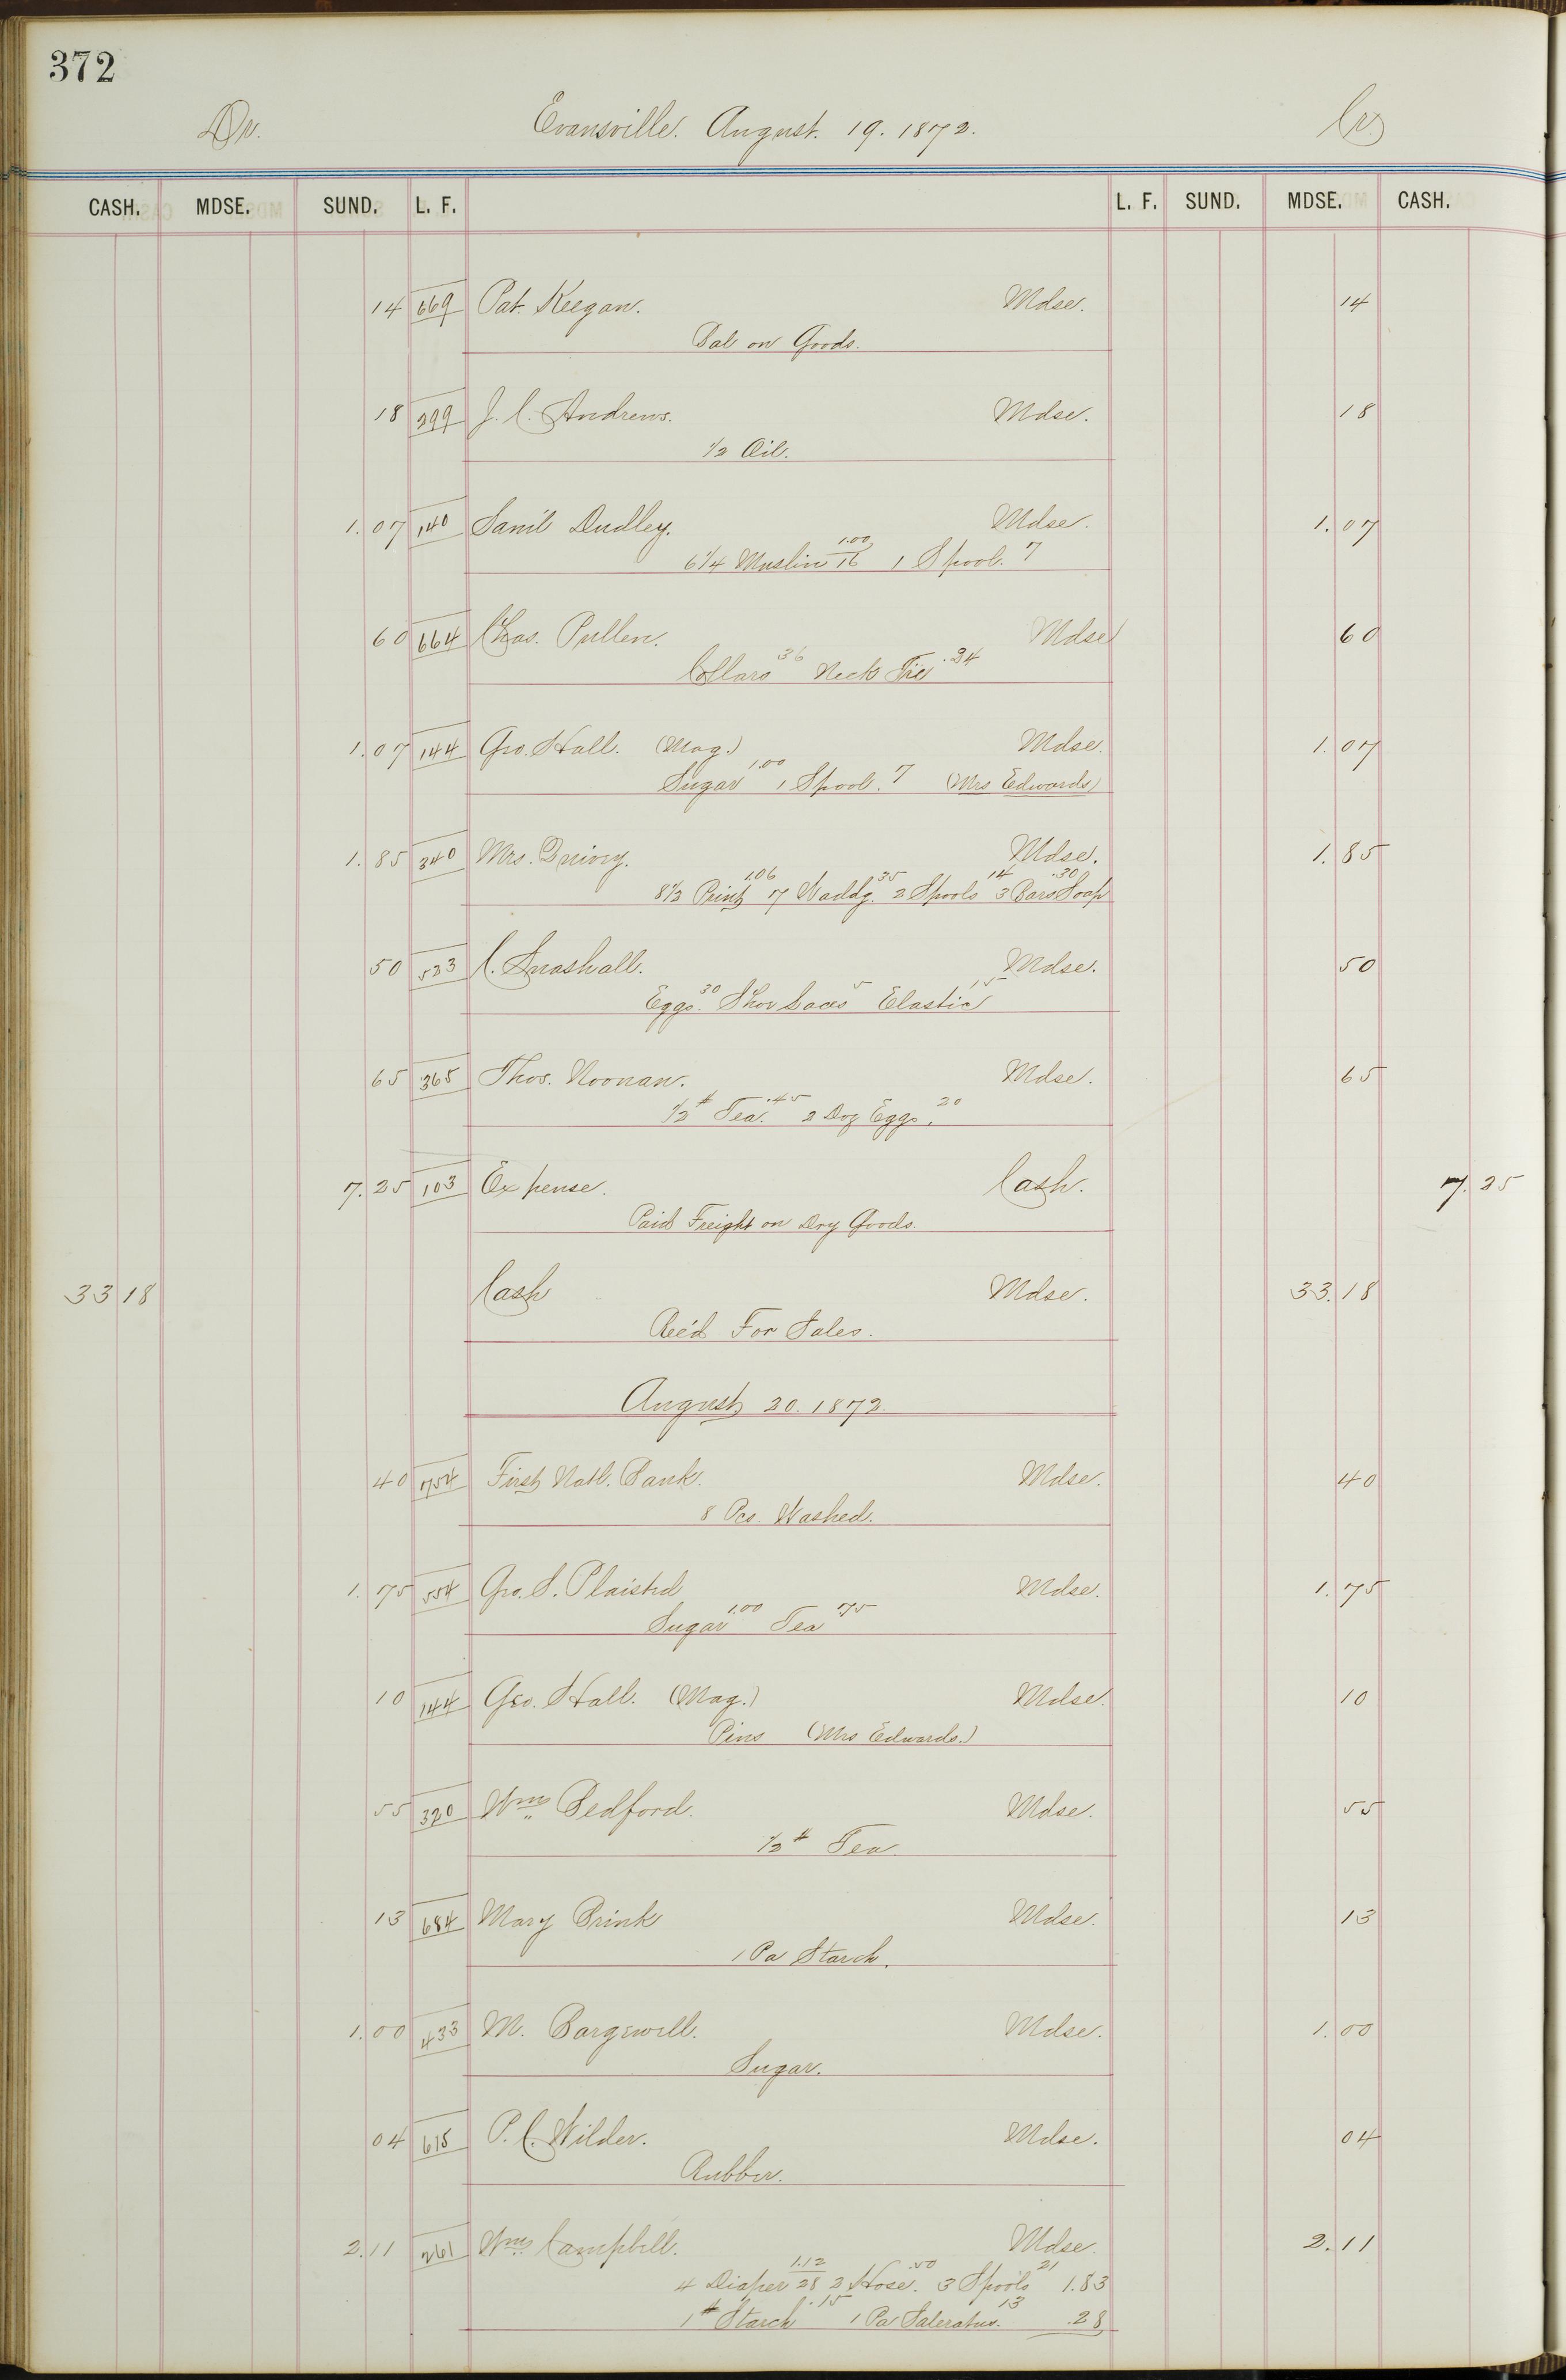 372
Dr. Evansville. August. 19. 1872. Cr.
CASH. MDSE. SUND. L. F. L. F. SUND. MDSE. CASH.
14 669 Pat. Keegan. Mdse. 14
Bal on Goods.
18 299 J. C. Andrews. Mdse. 18
1/2 Oil.
1.07 140 Saml Dudley. Mdse. 1.07
6 1/4 Muslin 1.00/16 1 Spool. 7
60 664 Chas. Pullen. Mdse 60
Collars 36 Neck Tie .34
1.07 144 Geo. Hall. (Mag.) Mdse. 1.07
Sugar 1.00 1 Spool. 7 (Mrs Edwards)
1.85 340 Mrs. Mdse. 1.85
8 1/2 Print 1.06 7 Waddg. 35 2 Spools 14 3 Bars Soap .30
50 523 C. Snashall. Mdse. 50
Eggs. 30 Shoe Laces 5 Elastic 15
65 365 Thos. Noonan. Mdse. 65
1/2 # Tea. .45 2 Doz Eggs. 20
7.25 103 Expense. Cash. 7.25
Paid Freight on Dry Goods.
33 18 Cash Mdse. 33.18
Rec'd For Sales.
August 20. 1872.
40 754 First Natl. Bank. Mdse. 40
8 Pcs. Washed.
1.75 554 Geo. S. Plaisted Mdse. 1.75
Sugar 1.00 Tea 75
10 144 Geo. Hall. (Mag.) Mdse. 10
Pins (Mrs Edwards.)
55 320 Wm Bedford. Mdse. 55
1/2 # Tea.
13 684 Mary Brink Mdse. 13
1 Pa Starch.
1.00 433 M. Bargewell. Mdse. 1.00
Sugar.
04 615 P. C. Wilder. Mdse. 04
Rubber.
2.11 261 Wm Campbell. Mdse. 2.11
4 Diaper 1.12/28 2 Hose. .50 3 Spools 21 1.83
1 # Starch .15 1 Pa Saleratus. 13 .28